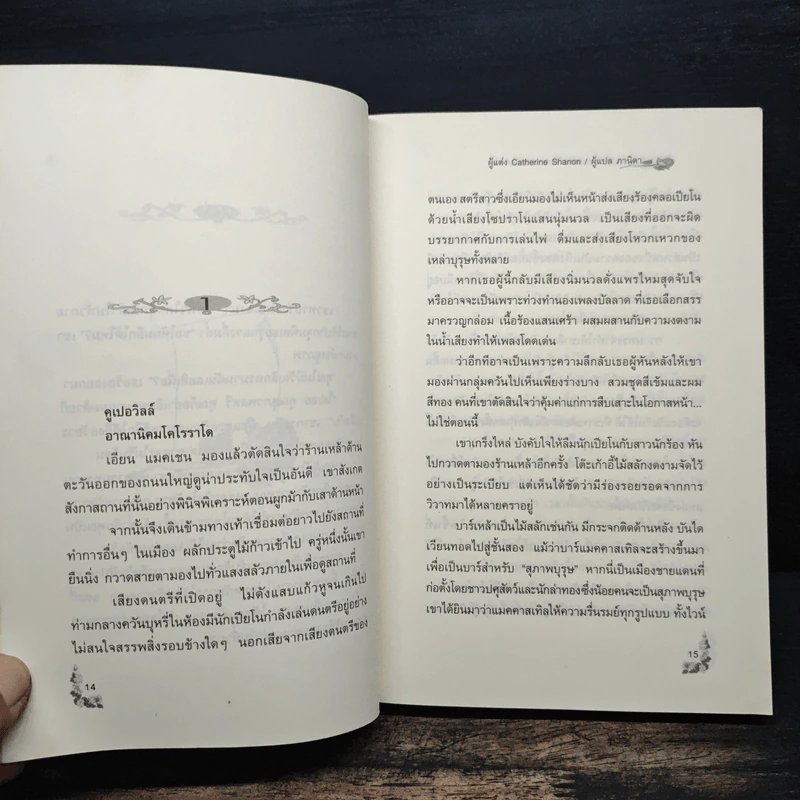 1
คูเปอวิลล์
อาณานิคมโคโรราโด
เอียน แมคเชน มองแล้วตัดสินใจว่าร้านเหล้าด้าน
ตะวันออกของถนนใหญ่ดูน่าประทับใจเป็นอันดี เขาสังเกต
สังกาสถานที่นั้นอย่างพินิจพิเคราะห์ตอนผูกม้ากับเสาด้านหน้า
จากนั้นจึงเดินข้ามทางเท้าเชื่อมต่อยาวไปยังสถานที่
ทำการอื่นๆ ในเมือง ผลักประตูไม้ก้าวเข้าไป ครู่หนึ่งนั้นเขา
ยืนนิ่ง กวาดสายตามองไปทั่วแสงสลัวภายในเพื่อดูสถานที่
เสียงดนตรีที่เปิดอยู่ ไม่ดังแสบแก้วหูจนเกินไป
ท่ามกลางควันบุหรี่ในห้องมีนักเปียโนกำลังเล่นดนตรีอยู่อย่าง
ไม่สนใจสรรพสิ่งรอบข้างใดๆ นอกเสียจากเสียงดนตรีของ
14
ผู้แต่ง Catherine Shanon / ผู้แปล ภานิตา
ตนเอง สตรีสาวซึ่งเอียนมองไม่เห็นหน้าส่งเสียงร้องคลอเปียโน
ด้วยน้ำเสียงโซปราโนแสนนุ่มนวล เป็นเสียงที่ออกจะผิด
บรรยากาศกับการเล่นไพ่ ดื่มและส่งเสียงโหวกเหวกของ
เหล่าบุรุษทั้งหลาย
หากเธอผู้นี้กลับมีเสียงนิ่มนวลดั่งแพรไหมสุดจับใจ
หรืออาจจะเป็นเพราะท่วงทำนองเพลงบัลลาด ที่เธอเลือกสรร
มาครวญกล่อม เนื้อร้องแสนเศร้า ผสมผสานกับความงดงาม
ในน้ำเสียงทำให้เพลงโดดเด่น
ว่าอีกทีอาจเป็นเพราะความลึกลับเธอผู้หันหลังให้เขา
มองผ่านกลุ่มควันไปเห็นเพียงร่างบาง สวมชุดสีเข้มและผม
สีทอง คนที่เขาตัดสินใจว่าคุ้มค่าแก่การสืบเสาะในโอกาสหน้า...
ไม่ใช่ตอนนี้
เขาเกร็งไหล่ บังคับใจให้ลืมนักเปียโนกับสาวนักร้อง หัน
ไปกวาดตามองร้านเหล้าอีกครั้ง โต๊ะเก้าอี้ไม้สลักงดงามจัดไว้
อย่างเป็นระเบียบ แต่เห็นได้ชัดว่ามีร่องรอยรอดจากการ
วิวาทมาได้หลายคราอยู่
บาร์เหล้าเป็นไม้สลักเช่นกัน มีกระจกติดด้านหลัง บันได
เวียนทอดไปสู่ชั้นสอง แม้ว่าบาร์แมคคาสเทิลจะสร้างขึ้นมา
เพื่อเป็นบาร์สำหรับ "สุภาพบุรุษ" หากนี่เป็นเมืองชายแดนที่
ก่อตั้งโดยชาวปศุสัตว์และนักล่าทองซึ่งน้อยคนจะเป็นสุภาพบุรุษ
เขาได้ยินมาว่าแมคคาสเทิลให้ความรื่นรมย์ทุกรูปแบบ ทั้งไวน์
15